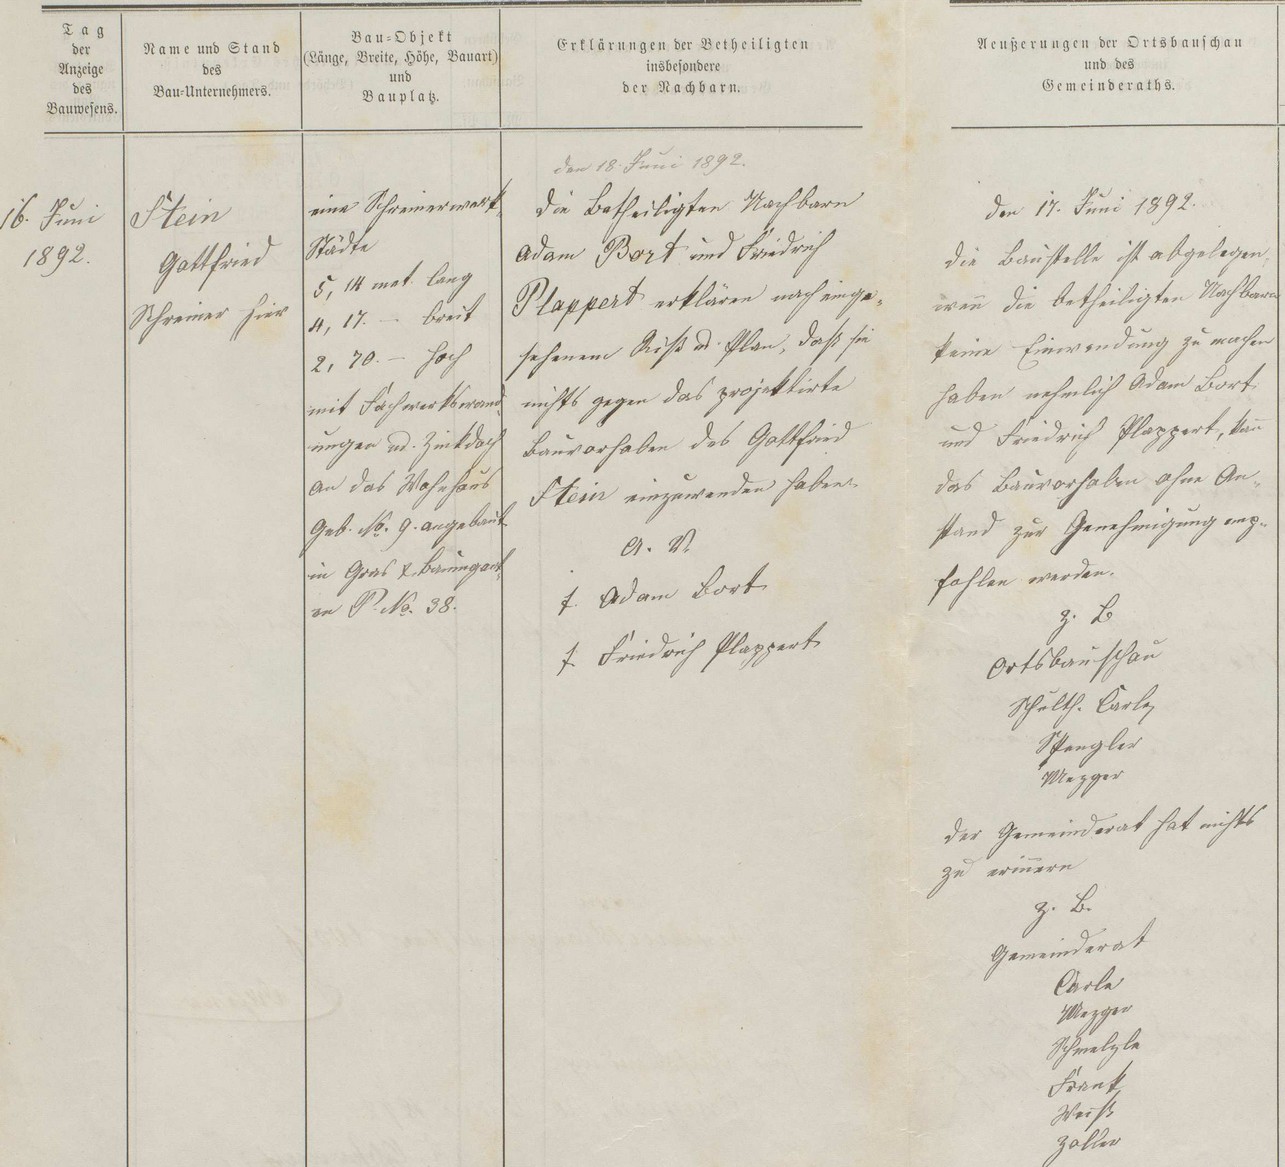 Tag
der
Anzeige
des
Bauwesens.
Name und Stand
des
Bau-Unternehmers.
Bau-Objekt
(Länge, Breite, Höhe, Bauart)
und
Bauplatz.
Erklärungen der Betheiligten
insbesondere
der Nachbarn.
Aeußerungen der Ortsbauschau
und des
Gemeinderaths.
16. Juni
1892.
Stein
Gottfried
Schreiner hier
eine Schreinerwerk-
Städte
5,14 met. lang
4,17. — breit
2,70. — hoch
mit Fachwerkswand-
ungen ud. Zinkdach
an das Wohnhaus
Geb. No. 9. angebaut
in Gras & Baumgart-
en P. No. 38.
den 18. Juni 1892.
Die Betheiligten Nachbarn
Adam Bort und Friedrich
Plappert erklären nach einge-
sehenem Riß ud. Plan, daß sie
nichts gegen das projektirte
Bauvorhaben des Gottfried
Stein einzuwenden haben.
A. V.
t. Adam Bort
t. Friedrich Plappert
den 17. Juni 1892.
Die Baustelle ist abgelegen,
weñ die betheiligten Nachbarn
keine Einwendung zu machen
haben nehmlich Adam Bort
und Friedrich Plappert, kañ
das Bauvorhaben ohne An-
stand zur Genehmigung emp-
fohlen werden.
z. B
Ortsbauschau
Schulth. Carle
Spengler
Mezger
Der Gemeinderat hat nichts
zu eriñern
z. B.
Gemeinderat
Carle
Mezger
Schmelzle
Frank
Weiß
Zoller